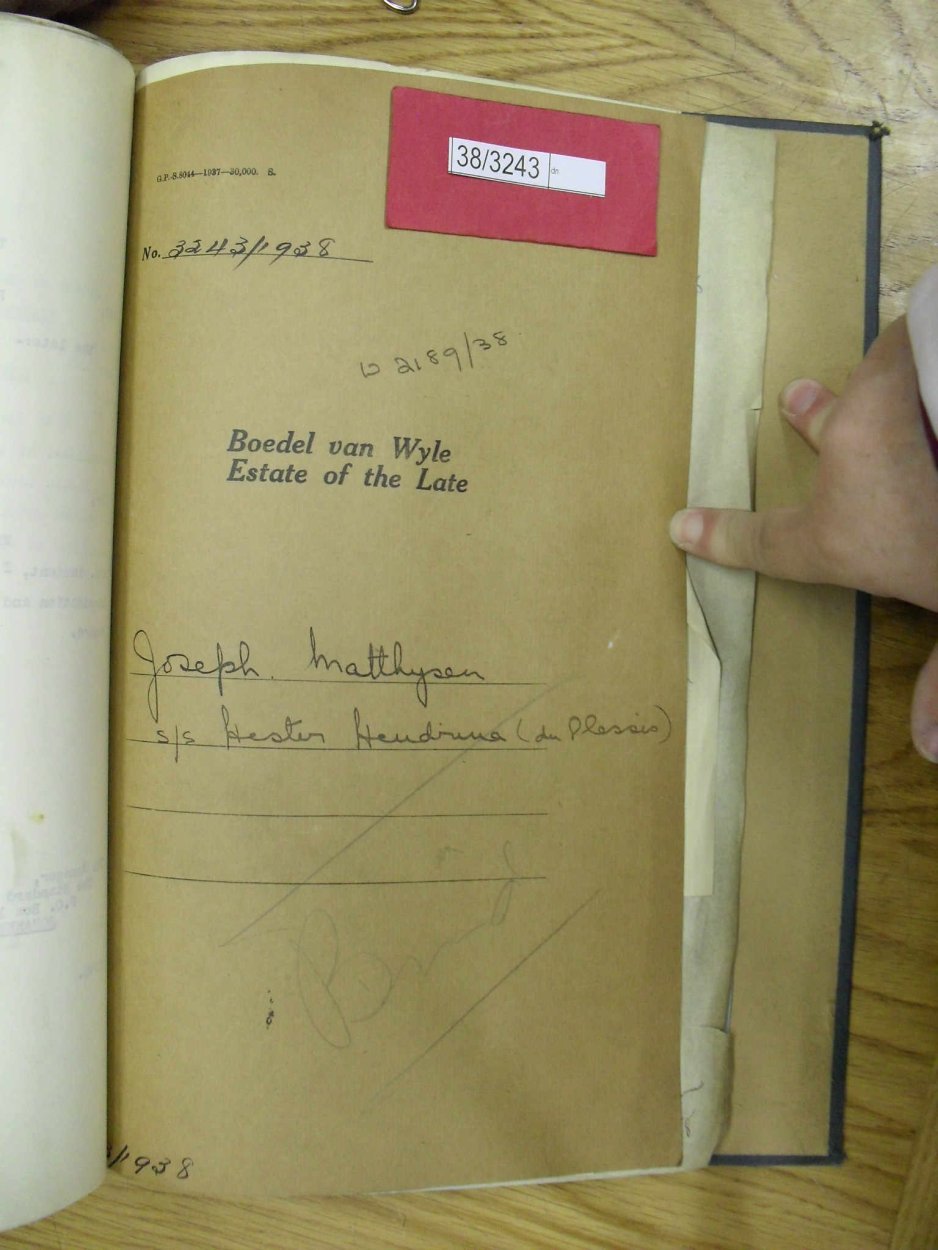 38/3243 dn
G.P.-S.8044—1937—50,000. S.
No. 3243/1938
W 2189/38
Boedel van Wyle
Estate of the Late
Joseph. Matthysen
s/s Hester Hendrina (du Plessis)
/1938